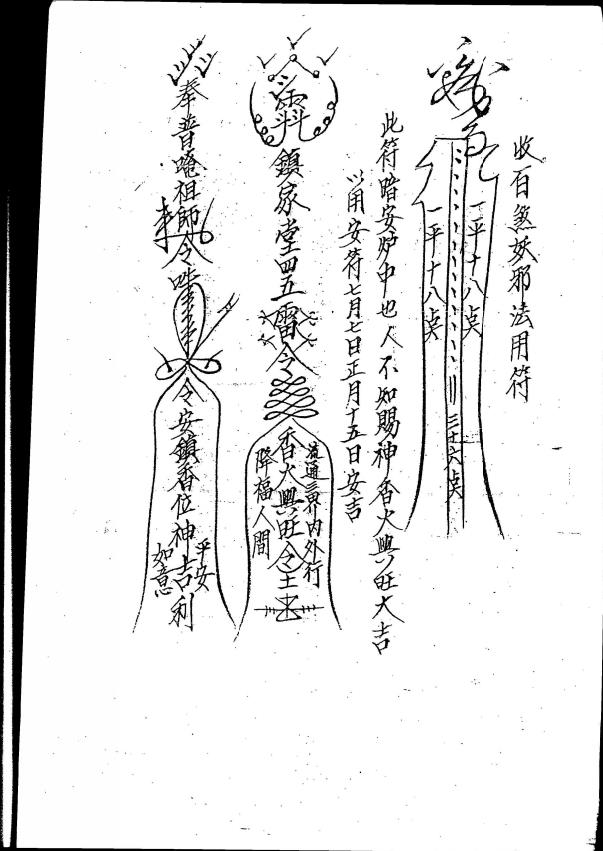 收百煞妖邪法用符
一平十八点
一平十八点
三十六点
此符暗安炉中也人不知賜神香火興旺大吉
以用安符七月七日正月十五日安吉
鎮家堂四五雷令
流通三界內外行
香火興旺令
降福人間
奉普唵祖師令
令安鎮香位神吉利
平安
如意